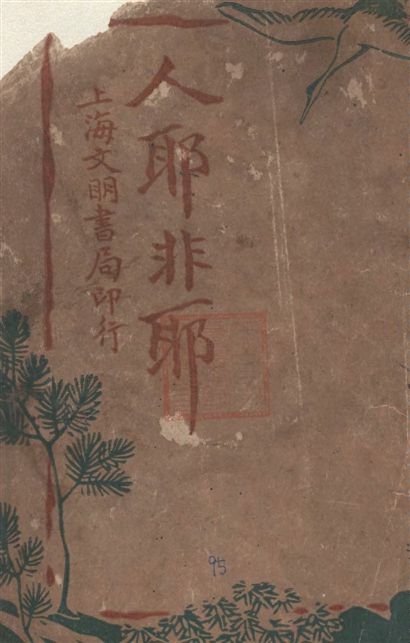 人耶非耶
上海文明書局印行
95